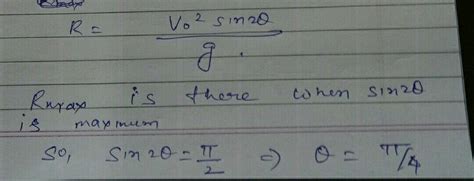 R = V₀² sin2θ / g .
Rmax is there when sin2θ
is maximum
So, sin2θ = π/2 ⇒ θ = π/4